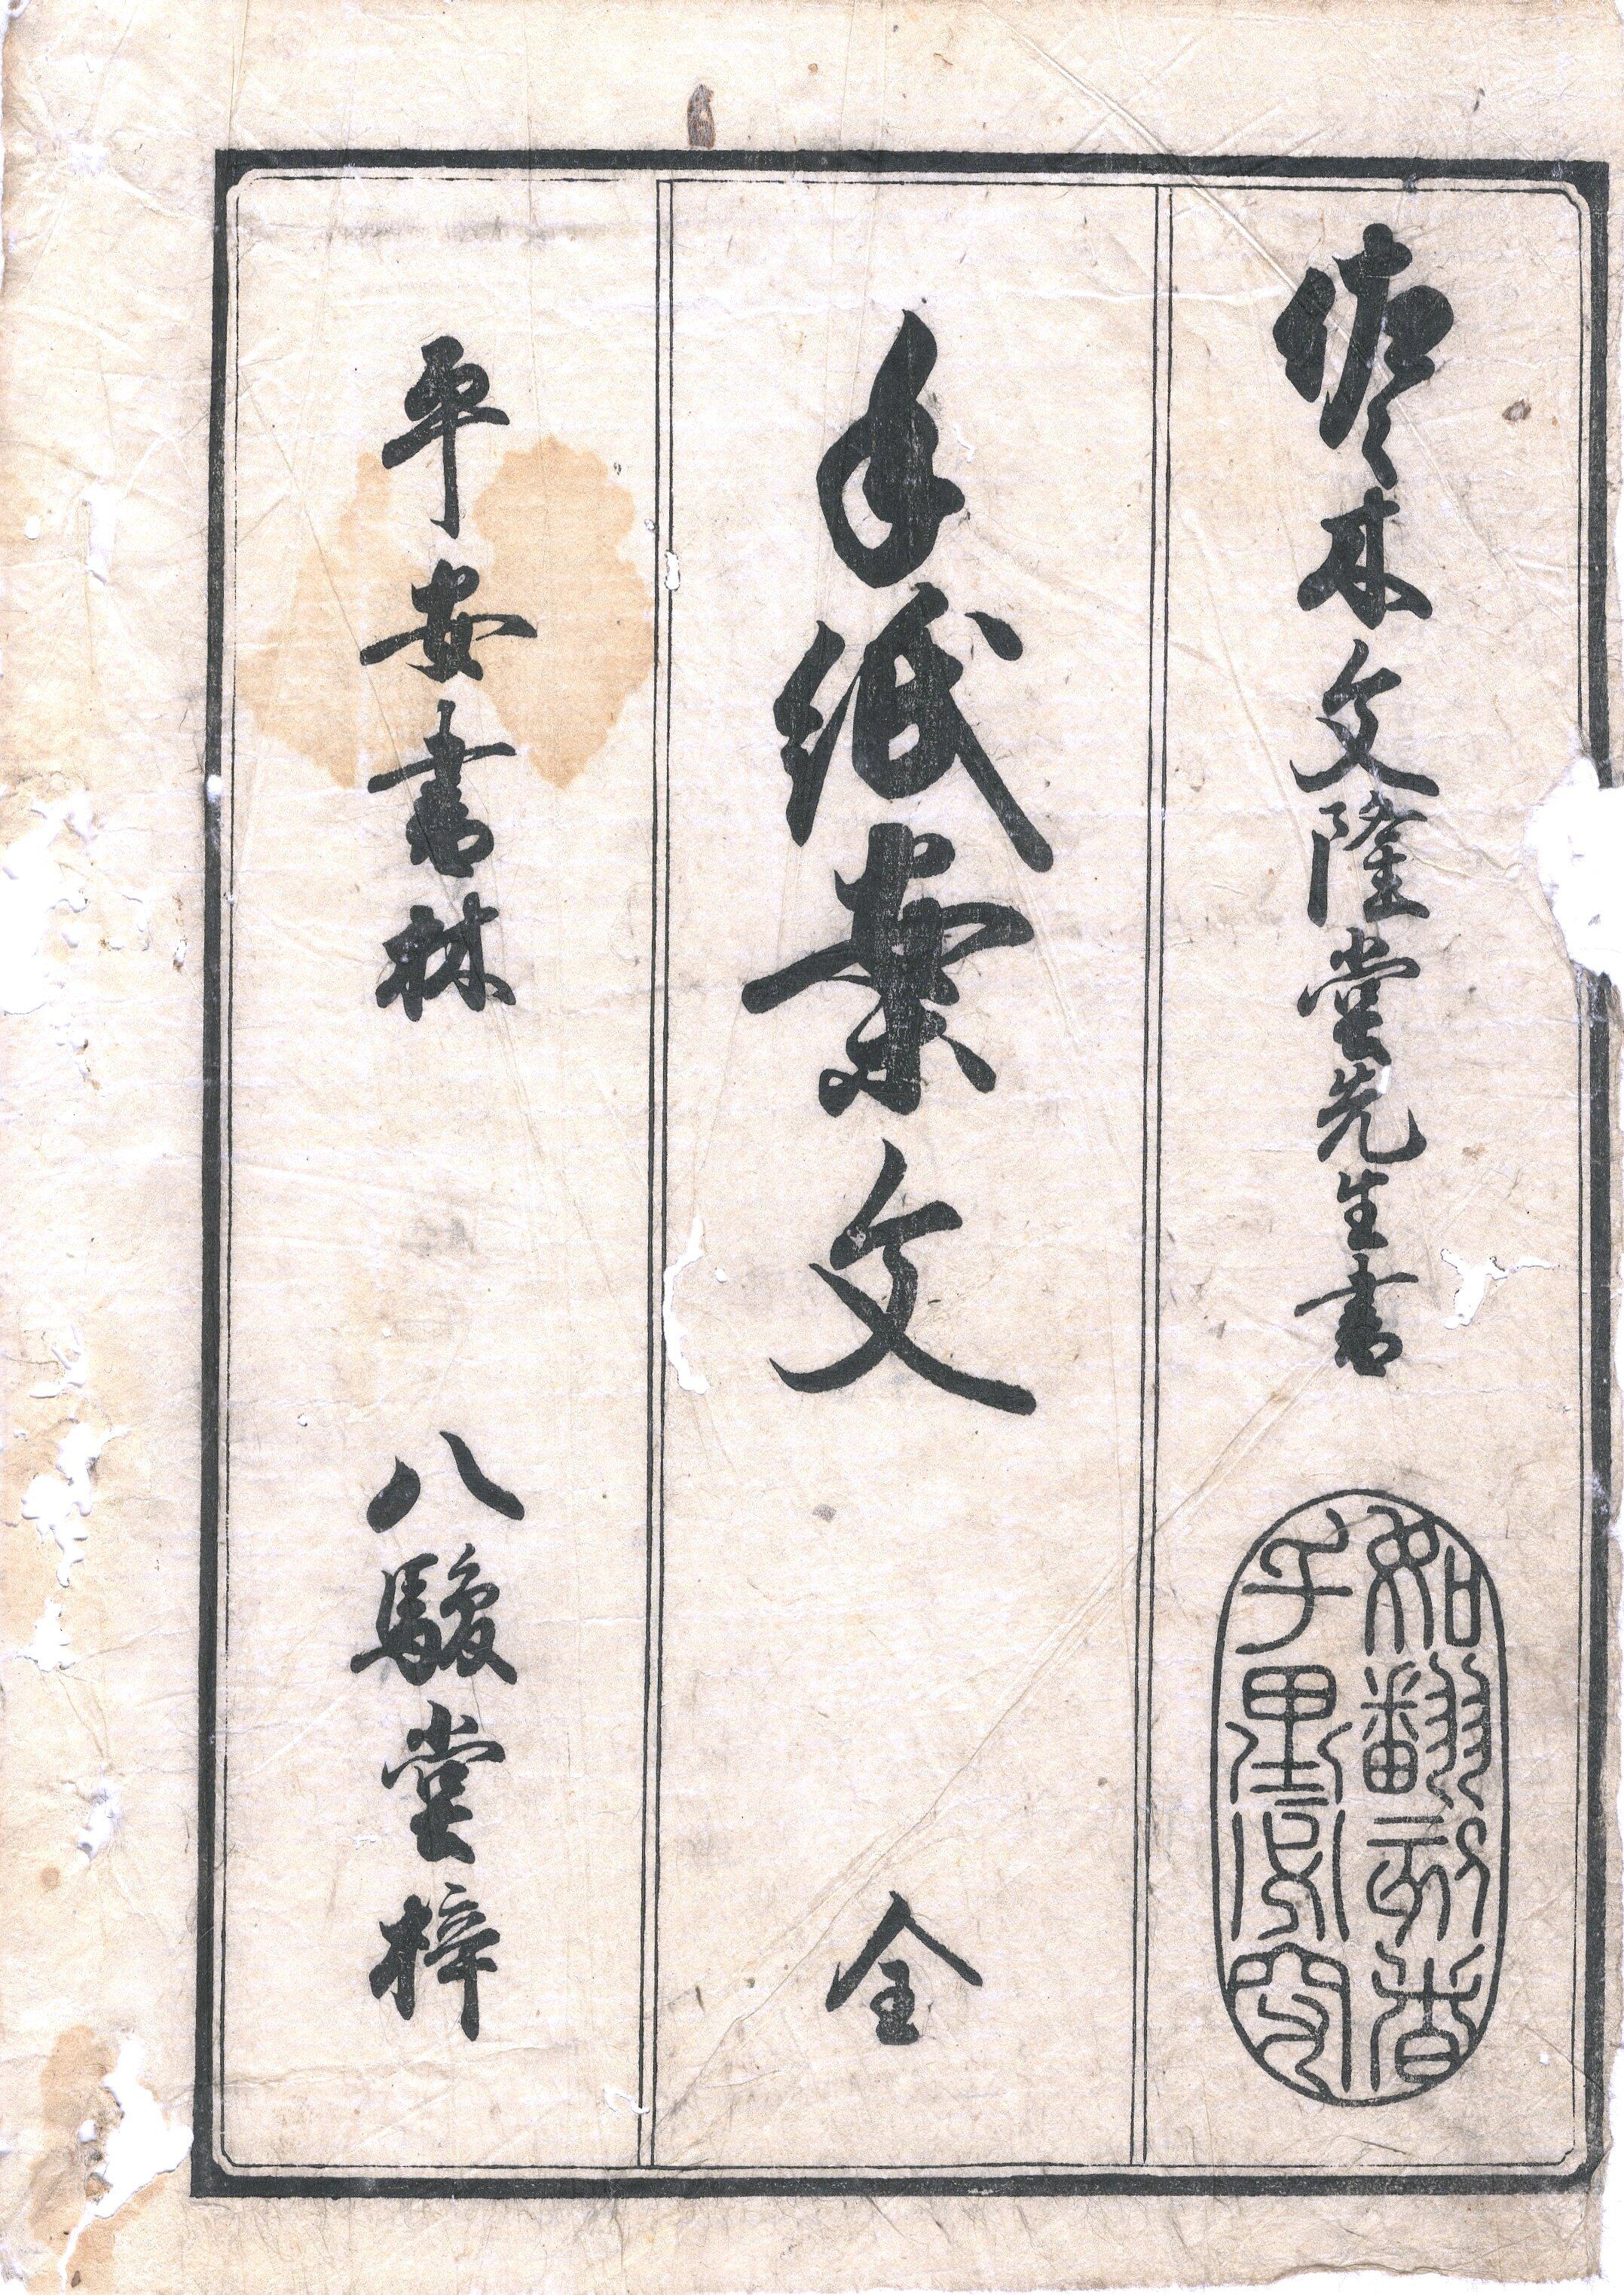 佐々木文隆堂先生書
如翻刻者
千里必究
手紙案文 全
平安書林 八駿堂梓